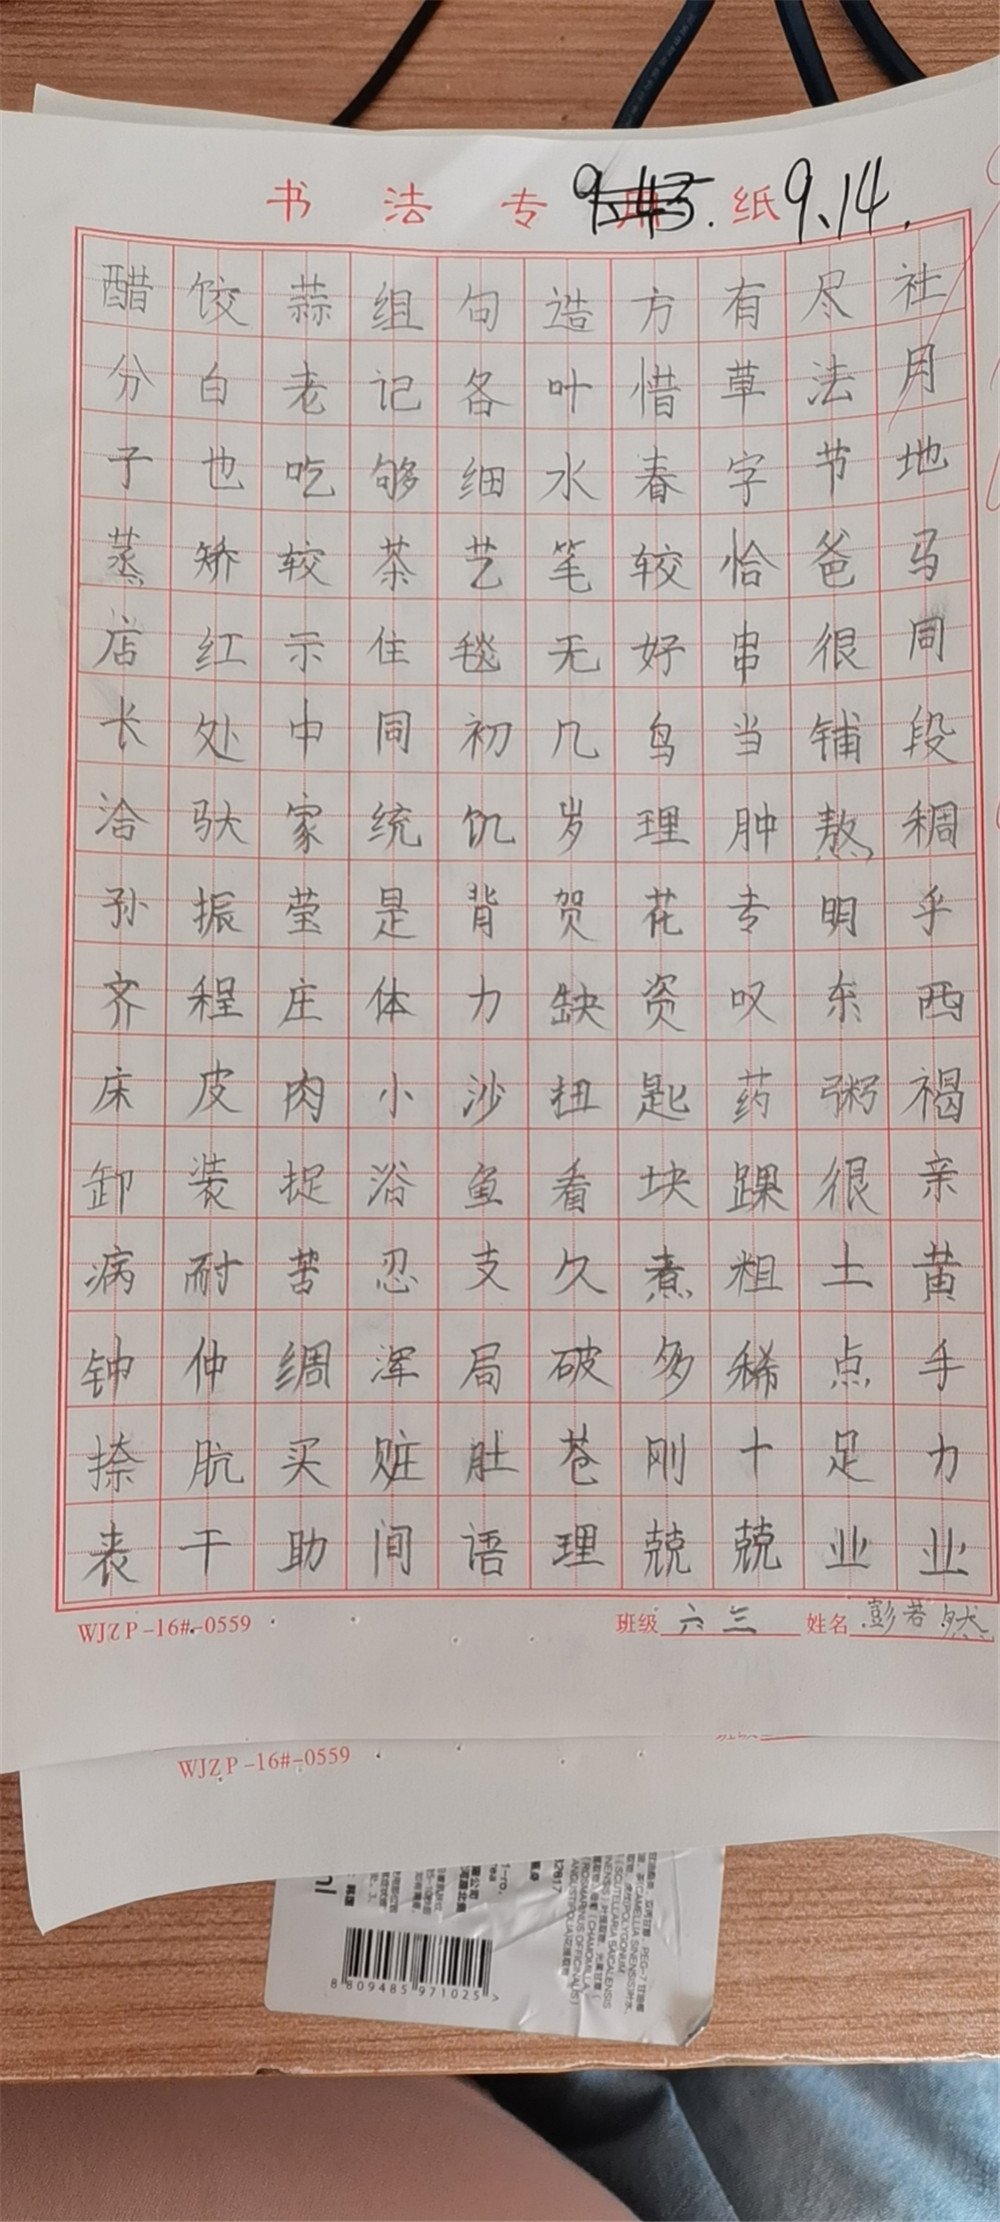 书法专用纸 9.14.
醋饺蒜组句造方有尽社
分白老记各叶惜草法月
子也吃够细水春字节地
蒸矫较茶艺笔较恰爸马
店红示住毯无好串很同
长处中同初几鸟当铺段
洽驮家统饥岁理肿熬稠
孙振莹是背贺花专明乎
齐程庄体力缺资叹东西
床皮肉小沙扭匙药粥褐
卸装捉浴鱼看块踝很亲
病耐苦忍支久煮粗土黄
钟仲绸浑局破多稀点手
捺肮买赃肚苍刚十足力
表干助间语理兢业业
WJZP-16#-0559 班级 六三 姓名 彭若然
WJZP-16#-0559
8 809485 971025 >